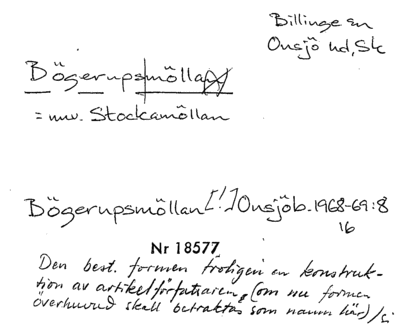 Billinge sn
Onsjö hd, Sk
Bögerupsmöllan
= nuv. Stockamöllan
Bögerupsmöllan [!] Onsjöb. 1968-69:8
16
Nr 18577
Den best. formen troligen en konstruk-
tion av artikelförfattaren, (om nu formen
överhuvud skall betraktas som namn här)